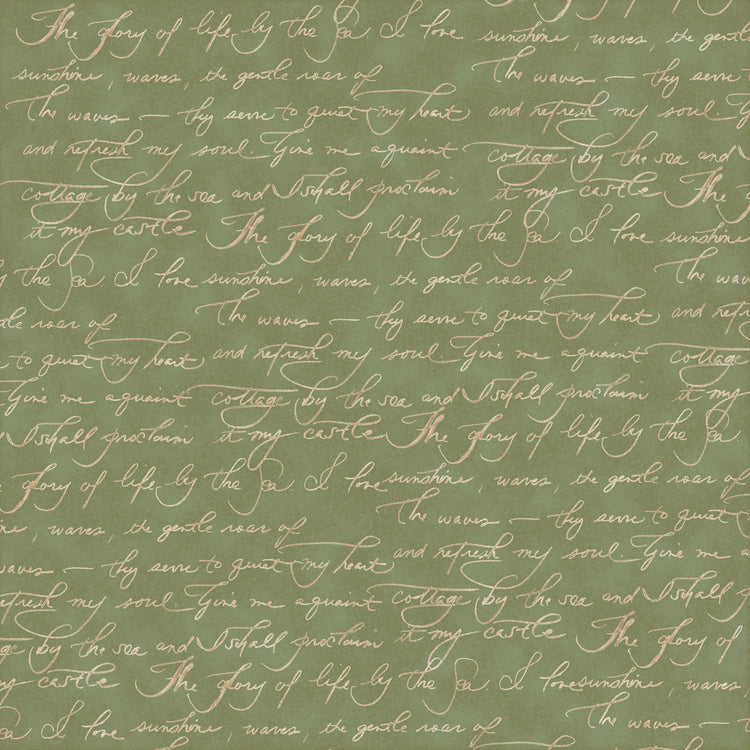 The glory of life by the Sea. I love sunshine, waves, the gentle
sunshine, waves, the gentle roar of The waves — they serve
The waves — they serve to quiet my heart and refresh my soul. G
and refresh my soul. Give me a quaint cottage by the sea and
cottage by the sea and I shall proclaim it my castle The
it my castle The glory of life by the Sea. I love sunshine
y the Sea. I love sunshine, waves, the gentle roar of The wa
tle roar of The waves — they serve to quiet my heart and ref
to quiet my heart and refresh my soul. Give me a quaint cottage
Give me a quaint cottage by the sea and I shall proclaim it my
d I shall proclaim it my castle The glory of life by the Sea
e glory of life by the Sea. I love sunshine, waves, the gentle roar of
ne, waves, the gentle roar of The waves — they serve to quiet
waves — they serve to quiet my heart and refresh my soul. Give me a
efresh my soul. Give me a quaint cottage by the sea and I shall p
ge by the sea and I shall proclaim it my castle The glory of
my castle The glory of life by the Sea. I love sunshine, waves
Sea. I love sunshine, waves, the gentle roar of The waves